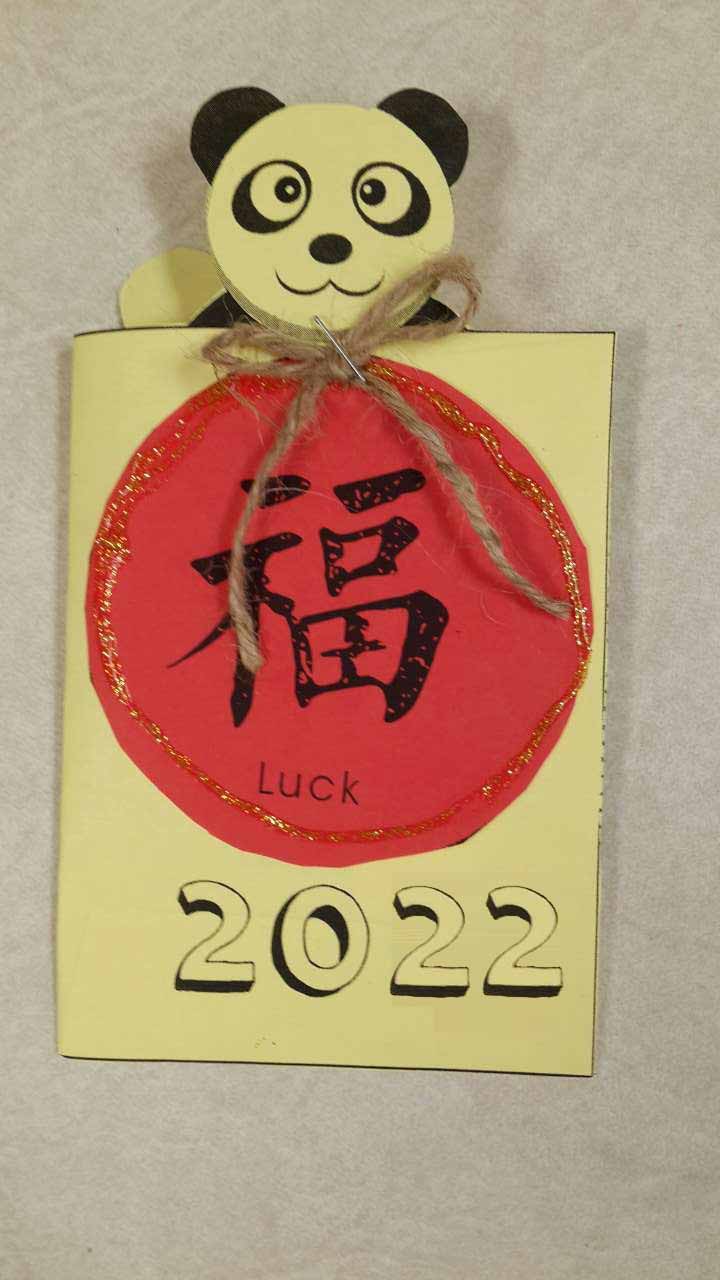 福
Luck
2022